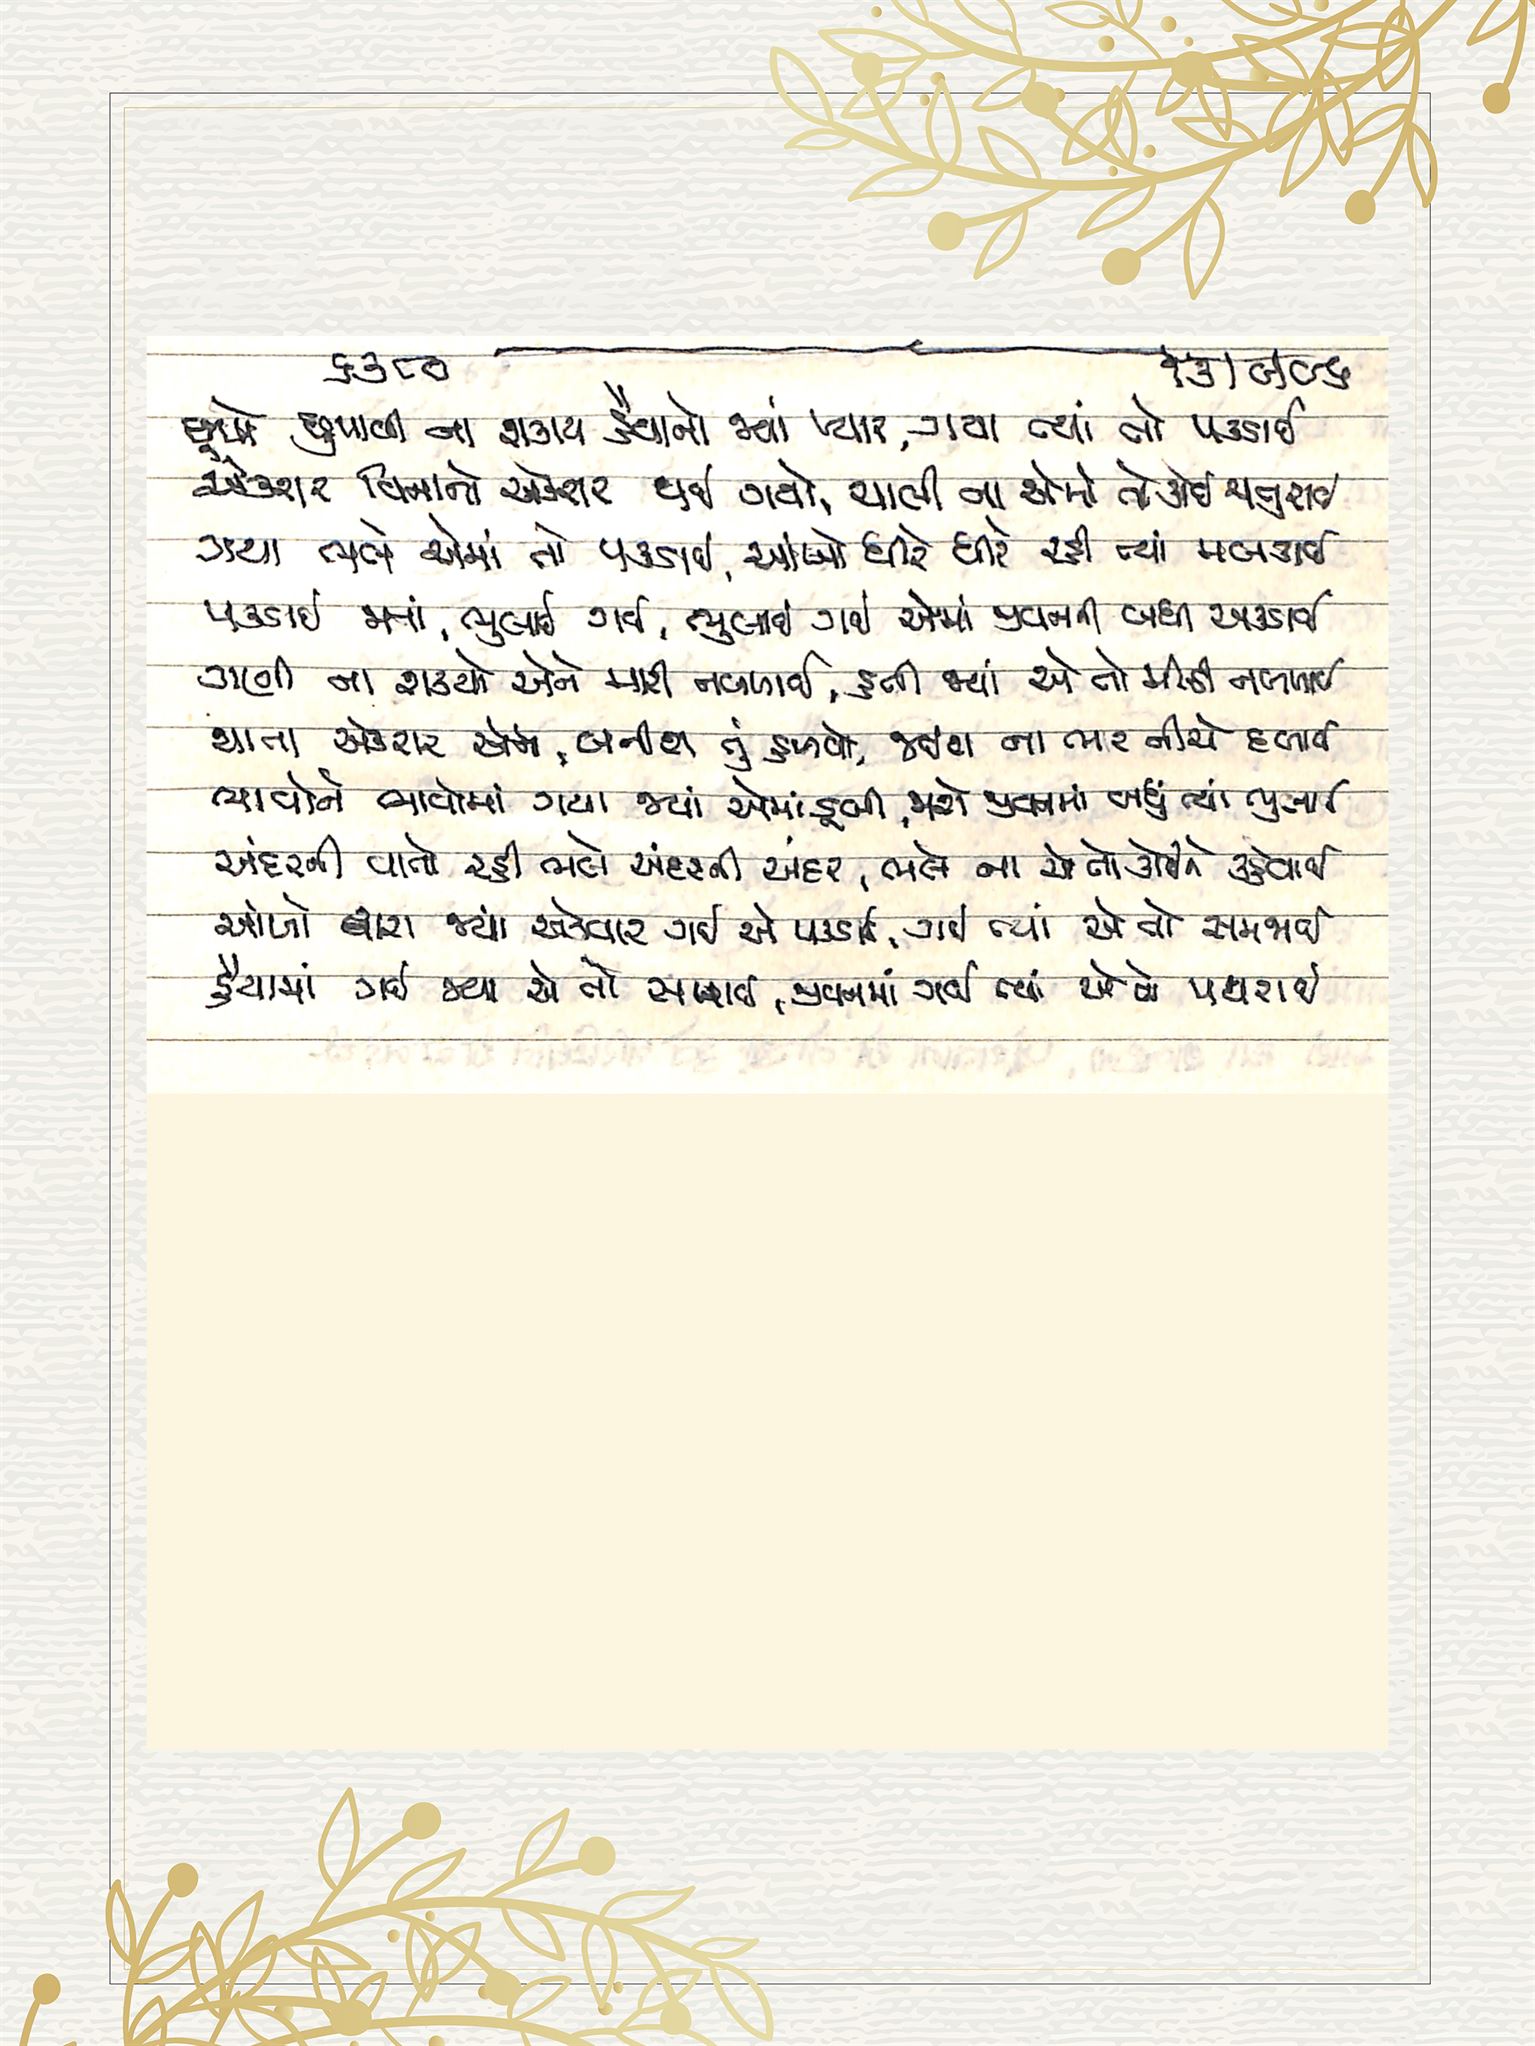 ૬૩૮૦ ૧૩/૮/૮૬
છૂપો છુપાવી ના શકાય હૈયાનો જ્યાં પ્યાર, ગયા ત્યાં તો પકડાઈ
એકરાર વિનાનો એકરાર થઈ ગયો, ચાલી ના એમાં તો કોઈ ચતુરાઈ
ગયા ભલે એમાં તો પકડાઈ, આંખો ધીરે ધીરે રહી ત્યાં મલકાઈ
પકડાઈ જાતાં, ભુલાઈ ગઈ, ભુલાઈ ગઈ એમાં જીવનની બધી અકડાઈ
ગણી ના શક્યો એને મારી નબળાઈ, હતી જ્યાં એ તો મીઠી નબળાઈ
થાતા એકરાર એમ, બનીશ તું હળવો, જઈશ ના ભાર નીચે દબાઈ
ભાવોને ભાવોમાં ગયા જ્યાં એમાં ડૂબી, જાશે જીવનમાં બધું ત્યાં ભુલાઈ
અંદરની વાતો રહી ભલે અંદરની અંદર, ભલે ના એ તો કોઈને કહેવાઈ
આંખો દ્વારા જ્યાં એકવાર ગઈ એ પકડાઈ, ગઈ ત્યાં એ તો સમજાઈ
હૈયામાં ગઈ જ્યાં એ તો સમાઈ, જીવનમાં ગઈ ત્યાં એ તો પથરાઈ